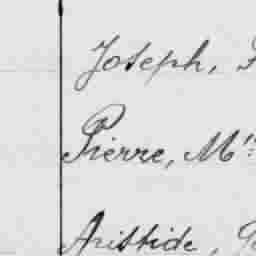 Joseph,
Pierre, M
Aristide,